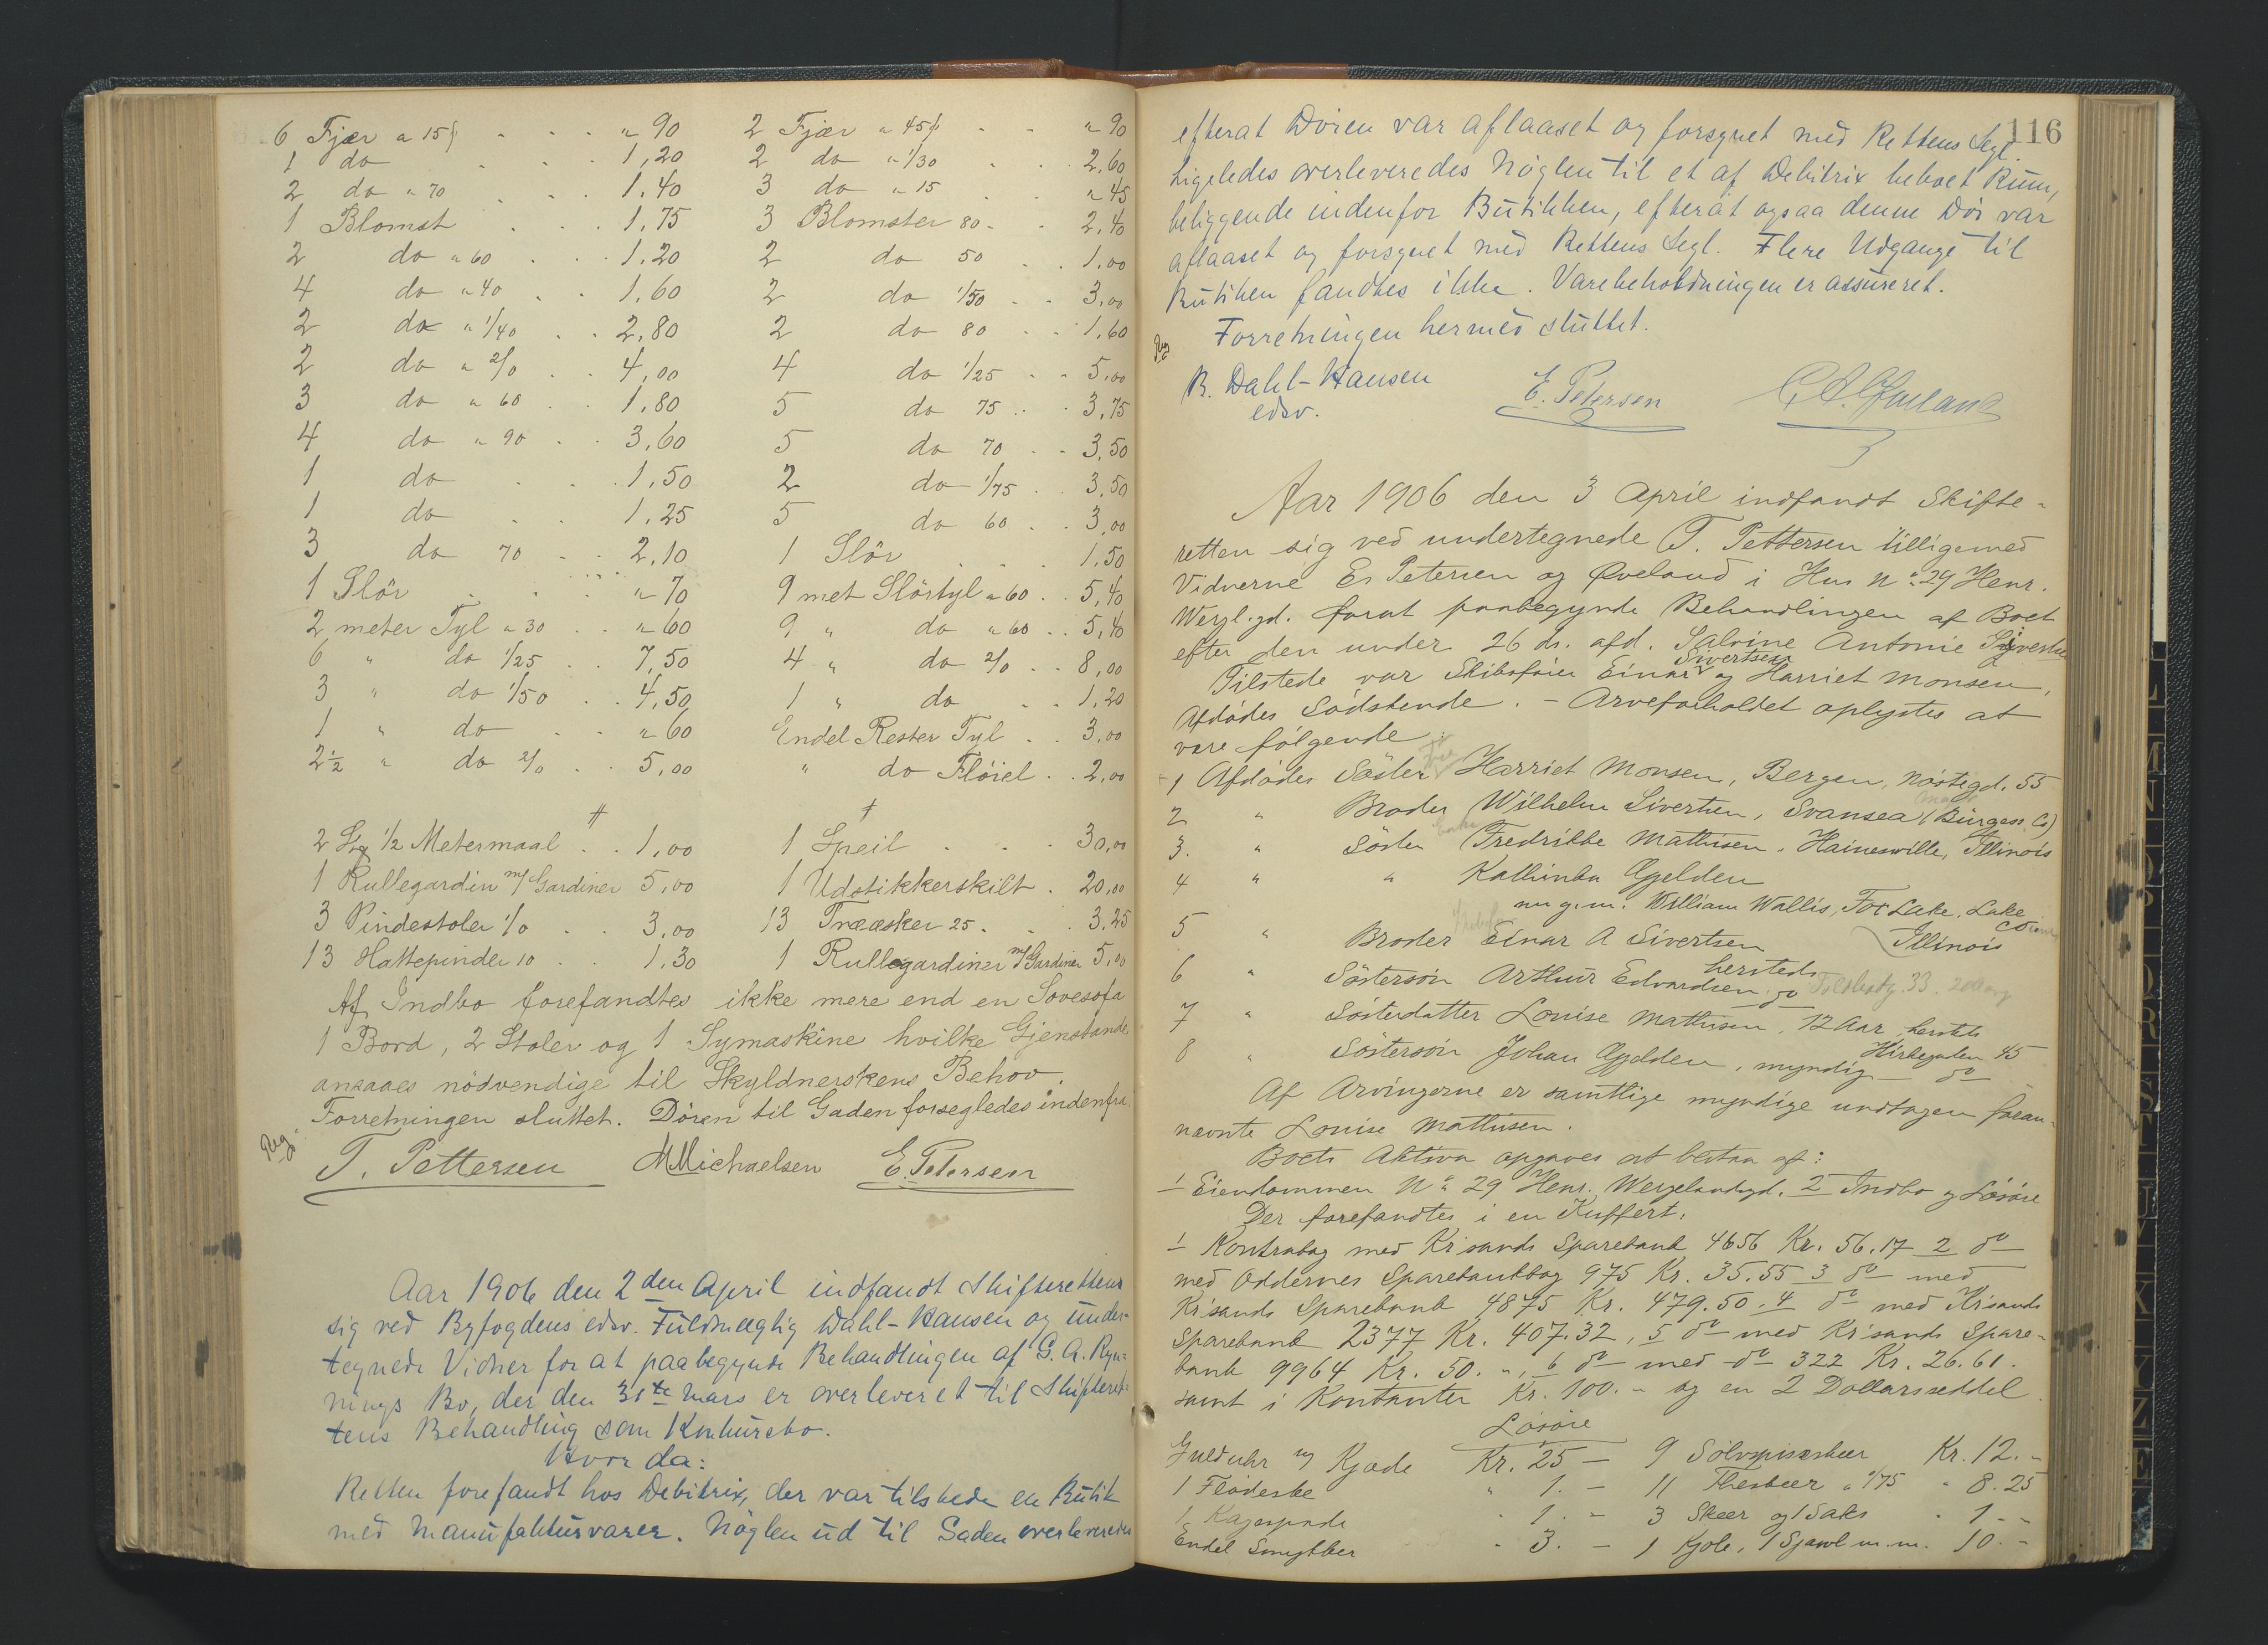 6 Fjær a 15f . . . " 90
1 do . . . 1,20
2 do " 70 . . . 1.40
1 Blomst . . . 1.75
2 do " 60 . . 1.20
4 do " 40 . . 1,60
2 do " 1/40 . . 2,80
2 do " 2/0 . . 4,00
3 do " 60 . . 1,80
4 do " 90 . . 3.60
1 do . . 1,50
1 do . . 1,25
3 do 70 . . 2,10
1 Slör . . . " 70
2 meter Tyl " 30 . . " 60
6 " do 1/25 . . 7,50
3 " do 1/50 . . 4,50
1 " do . . " 60
2½ " do 2/0 . . 5,00
2 Fjær " 45f . . " 90
2 do " 1/30 . . 2,60
3 do " 15 . . " 45
3 Blomster 80 . . 2,40
2 do 50 . . 1,00
2 do 1/50 . . 3,00
2 do 80 . . 1,60
4 do 1/25 . . 5,00
5 do 75 . . 3,75
5 do 70 . . 3,50
2 do 1/75 . . 3,50
5 do 60 . . 3,00
1 Slör . . . 1,50
9 met Slörtyl " 60 . . 5,40
9 " do " 60 . . 5,40
4 " do 2/0 . . 8,00
1 " do . . 1,20
Endel Rester Tyl . . 3,00
" do Flöiel . . 2,00
2 1/2 Metermaal . . 1,00
1 Rullegardin m/ Gardiner 5,00
3 Pindestoler 1/0 . . 3,00
13 Hattepinder 10 . . 1,30
1 Speil . . . 30,00
1 Udstikkerskilt . 20,00
13 Træesker 25 . . . 3.25
1 Rullegardiner m/ Gardiner 5,00
Af Indbo forefandtes ikke mere end en Sovesofa
1 Bord, 2 Stoler og 1 Symaskine hvilke Gjenstande
ansaaes nödvendige til Skyldnerskens Behov.
Forretningen sluttet. Dören til Gaden forsegledes indenfra.
T. Pettersen MMichaelsen E. Petersen
Aar 1906 den 2den April indfandt Skifteretten
sig ved Byfogdens edsv. Fuldmægtig Dahl-Hansen og under-
tegnede Vidner for at paabegynde Behandlingen af G. A. Ryn-
nings Bo, der den 31te Mars er overleveret til Skifteret-
tens Behandling som Konkursbo.
Hvorda:
Retten forefandt hos Debitrix, der var tilstede en Butik
med Manufakturvarer. Nöglen ud til Gaden overleveredes
116
efterat Dören var aflaaset og forsynet med Rettens Segl.
Ligeledes overleveredes Nöglen til et af Debitrix beboet Rum,
beliggende indenfor Butikken, efterat ogsaa denne Dör var
aflaaset og forsynet med Rettens Segl. Flere Udgange til
Butiken fandtes ikke. Varebeholdningen er assureret.
Forretningen hermed sluttet.
B. Dahl-Hansen E. Petersen
edsv.
Aar 1906 den 3 April indfandt Skifte-
retten sig ved undertegnede T. Pettersen tilligemed
Vidnerne Es Petersen og Øveland i Hus No 29 Henr.
Wergl.gd. forat paabegynde Behandlingen af Boet
efter den under 26 ds. afd. Salvine Antonie
Sivertsen
Tilstede var Skibsförer Einar og Harriet Monsen,
Afdödes Södskende. - Arveforholdet oplystes at
være fölgende:
1 Afdödes Söster Harriet Monsen, Bergen, Nöstegd. 55
2 " Broder Wilhelm Sivertsen, Svansea (Burgess Co)
3. " Söster Fredrikke Mathisen, Hainesville, Illinois
4 " " Kathinka Gjelden
nu g.m. William Wallis, Fox Lake, Lake
Co
5 " Broder Einar A Sivertsen Illinois
hersteds
6 " Söstersön Arthur Edvardsen do
7 " Sösterdatter Louise Mathisen, 12 Aar hersteds
Kirkegaten 45
8 " Söstersön Johan Gjelden, myndig - do
Af Arvingerne er samtlige myndige undtagen foran-
nævnte Louise Mathisen.
Boets Aktiva opgaves at bestaa af:
1 Eiendommen No 29 Henr. Wergelandsgd. 2 Indbo og Lösöre
Der forefandtes i en Kuffert:
1 Kontrabog med Kr'sands Sparebank 4656 Kr. 56.17 2 do
med Oddernes Sparebankbog 975 Kr. 35.55 3 do med
Kr'sands Sparebank 4875 Kr. 479.50. 4 do med Kr'sands
Sparebank 2377 Kr. 407.32, 5 do med Kr'sands Spare-
bank 9964 Kr. 50. ", 6 do med do 322 Kr. 26.61.
samt i Kontanter Kr. 100. - og en 2 Dollarsseddel
Lösöre
Guldur og Kjæde Kr. 25 - 9 Sölvspiseskeer Kr. 12. -
1 Flödeske " 1. - 11 Theskeer " /75 " 8.25
1 Kagespade " 1. - 3 Skeer og 1 Saks " 1 - -
Endel Smykker " 3. - 1 Kjole, 1 Sjawl m.m. 10. -